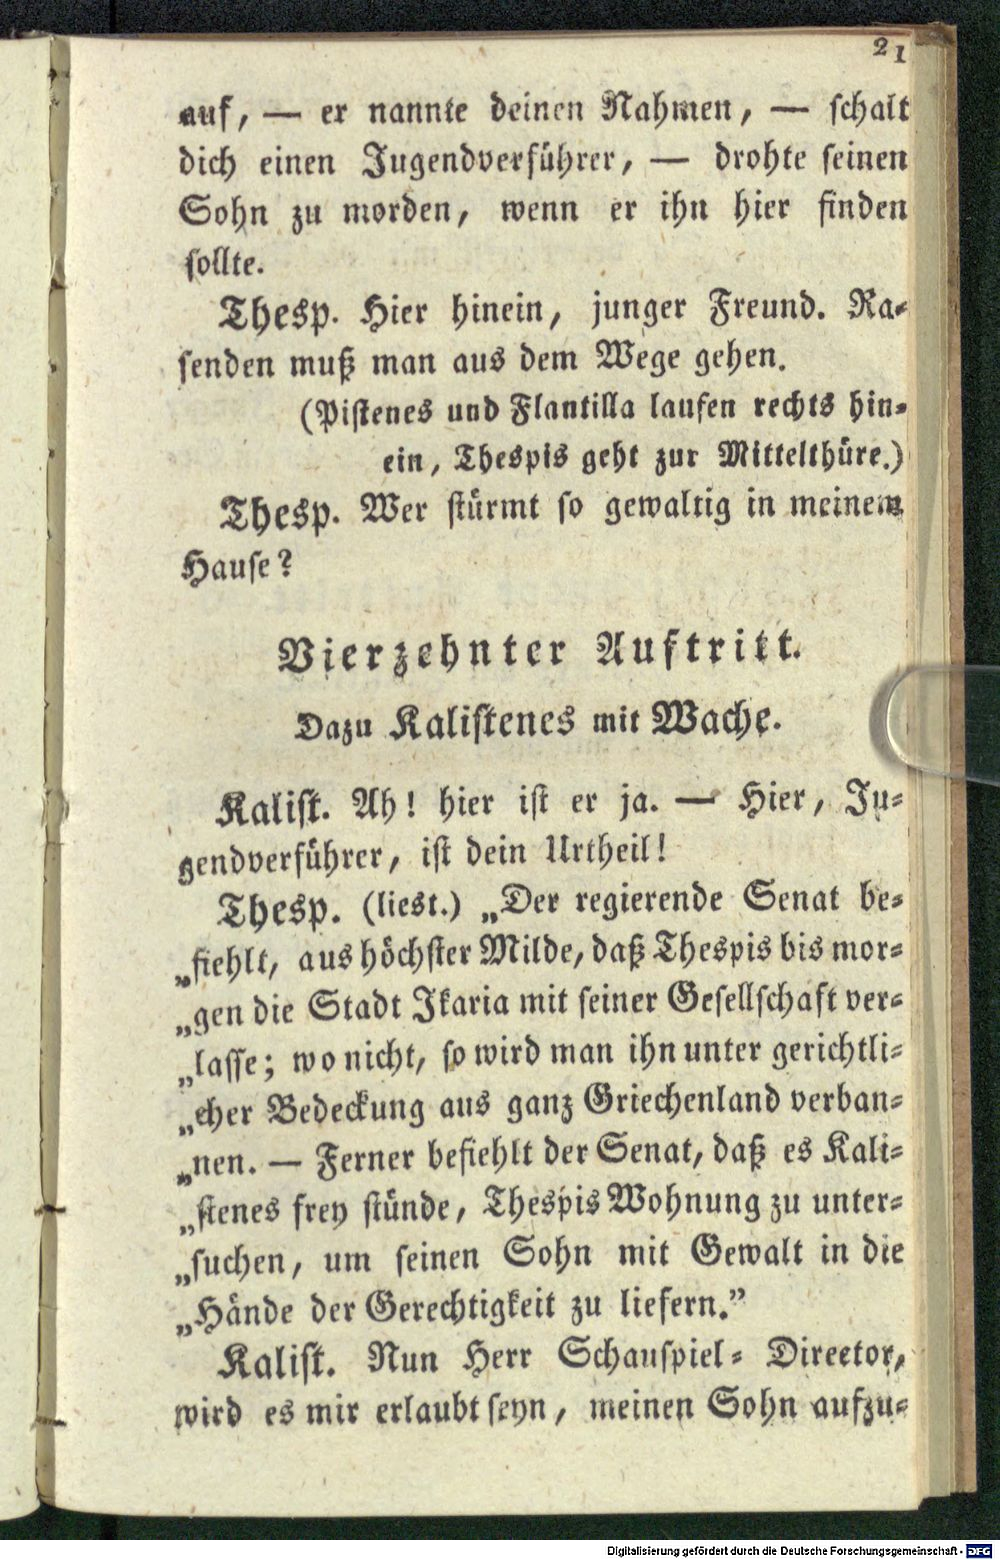 21
auf, — er nannte deinen Nahmen, — schalt
dich einen Jugendverführer, — drohte seinen
Sohn zu morden, wenn er ihn hier finden
sollte.
Thesp. Hier hinein, junger Freund. Ra-
senden muß man aus dem Wege gehen.
(Pistenes und Flantilla laufen rechts hin-
ein, Thespis geht zur Mittelthüre.)
Thesp. Wer stürmt so gewaltig in meinem
Hause?
Vierzehnter Auftritt.
Dazu Kalistenes mit Wache.
Kalist. Ah! hier ist er ja. — Hier, Ju-
gendverführer, ist dein Urtheil!
Thesp. (liest.) „Der regierende Senat be-
„fiehlt, aus höchster Milde, daß Thespis bis mor-
„gen die Stadt Ikaria mit seiner Gesellschaft ver-
„lasse; wo nicht, so wird man ihn unter gerichtli-
„cher Bedeckung aus ganz Griechenland verban-
„nen. — Ferner befiehlt der Senat, daß es Kali-
„stenes frey stünde, Thespis Wohnung zu unter-
„suchen, um seinen Sohn mit Gewalt in die
„Hände der Gerechtigkeit zu liefern.”
Kalist. Nun Herr Schauspiel-Director,
wird es mir erlaubt seyn, meinen Sohn aufzu-
Digitalisierung gefördert durch die Deutsche Forschungsgemeinschaft - DFG